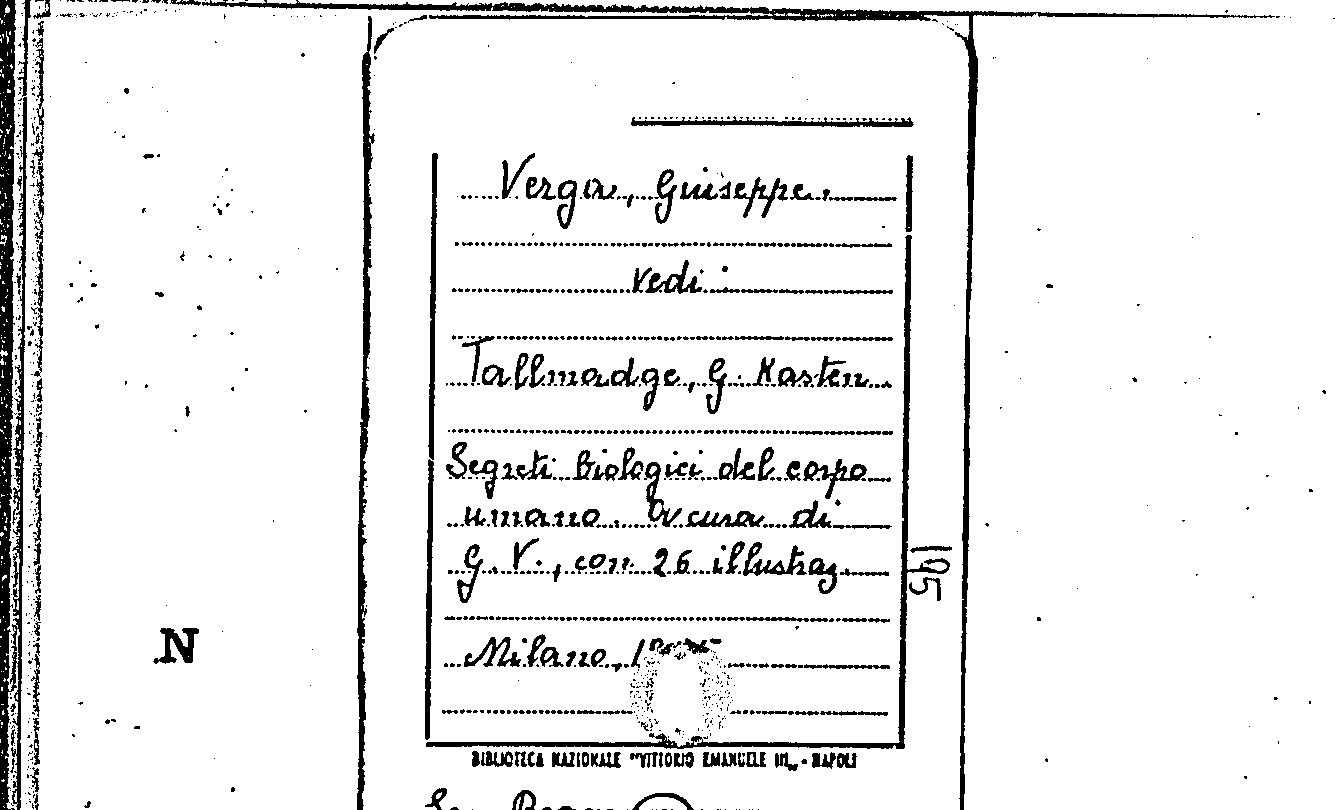 Verga, Giuseppe.
vedi :
Tallmadge, G. Kasten
Segreti biologici del corpo
umano. A cura di
G. V., con 26 illustraz.
195
Milano,
.N
BIBLIOTECA NAZIONALE "VITTORIO EMANUELE III„ - NAPOLI